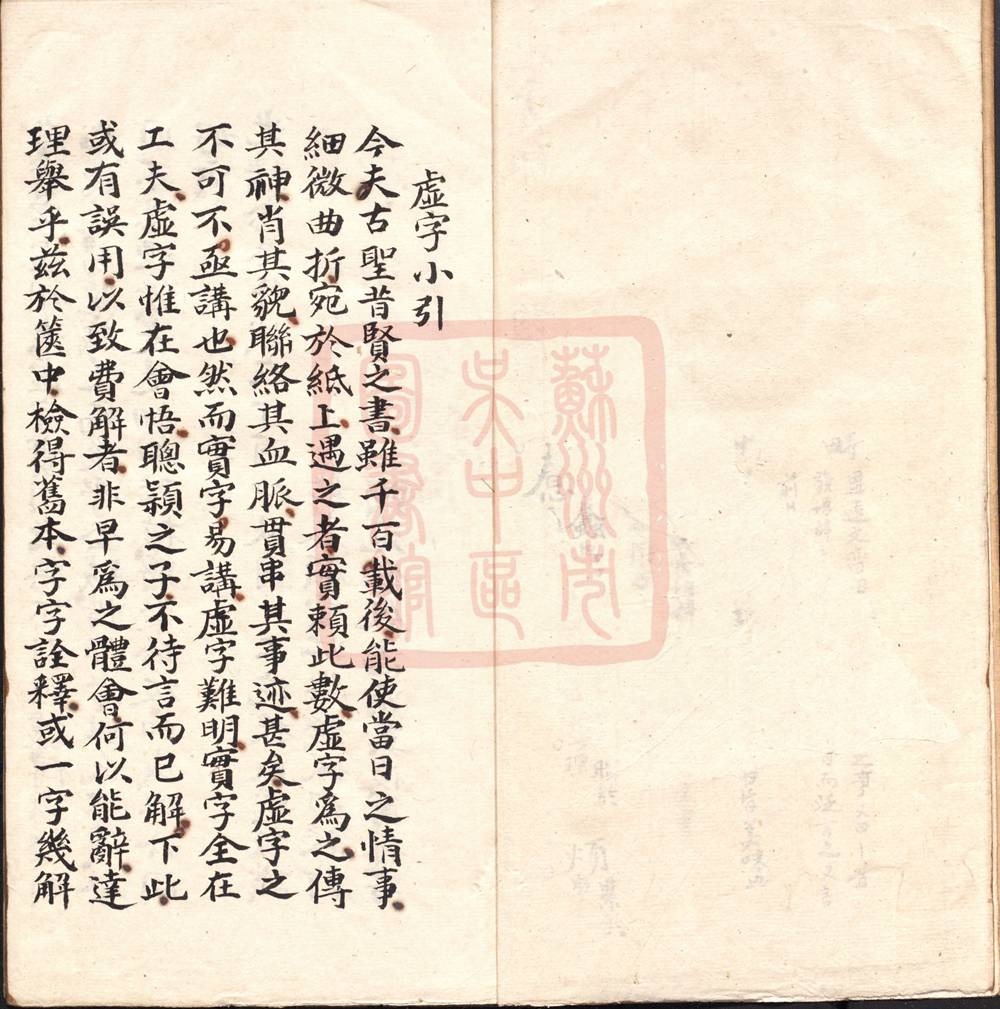 虛字小引
今夫古聖昔賢之書雖千百載後能使當日之情事
細微曲折宛於紙上遇之者實賴此數虛字爲之傳
其神肖其貌聯絡其血脈貫串其事迹甚矣虛字之
不可不亟講也然而實字易講虛字難明實字全在
工夫虛字惟在會悟聰穎之子不待言而已解下此
或有誤用以致費解者非早爲之體會何以能辭達
理舉乎茲於篋中檢得舊本字字詮釋或一字幾解
蘇州市
吳中區
圖書館